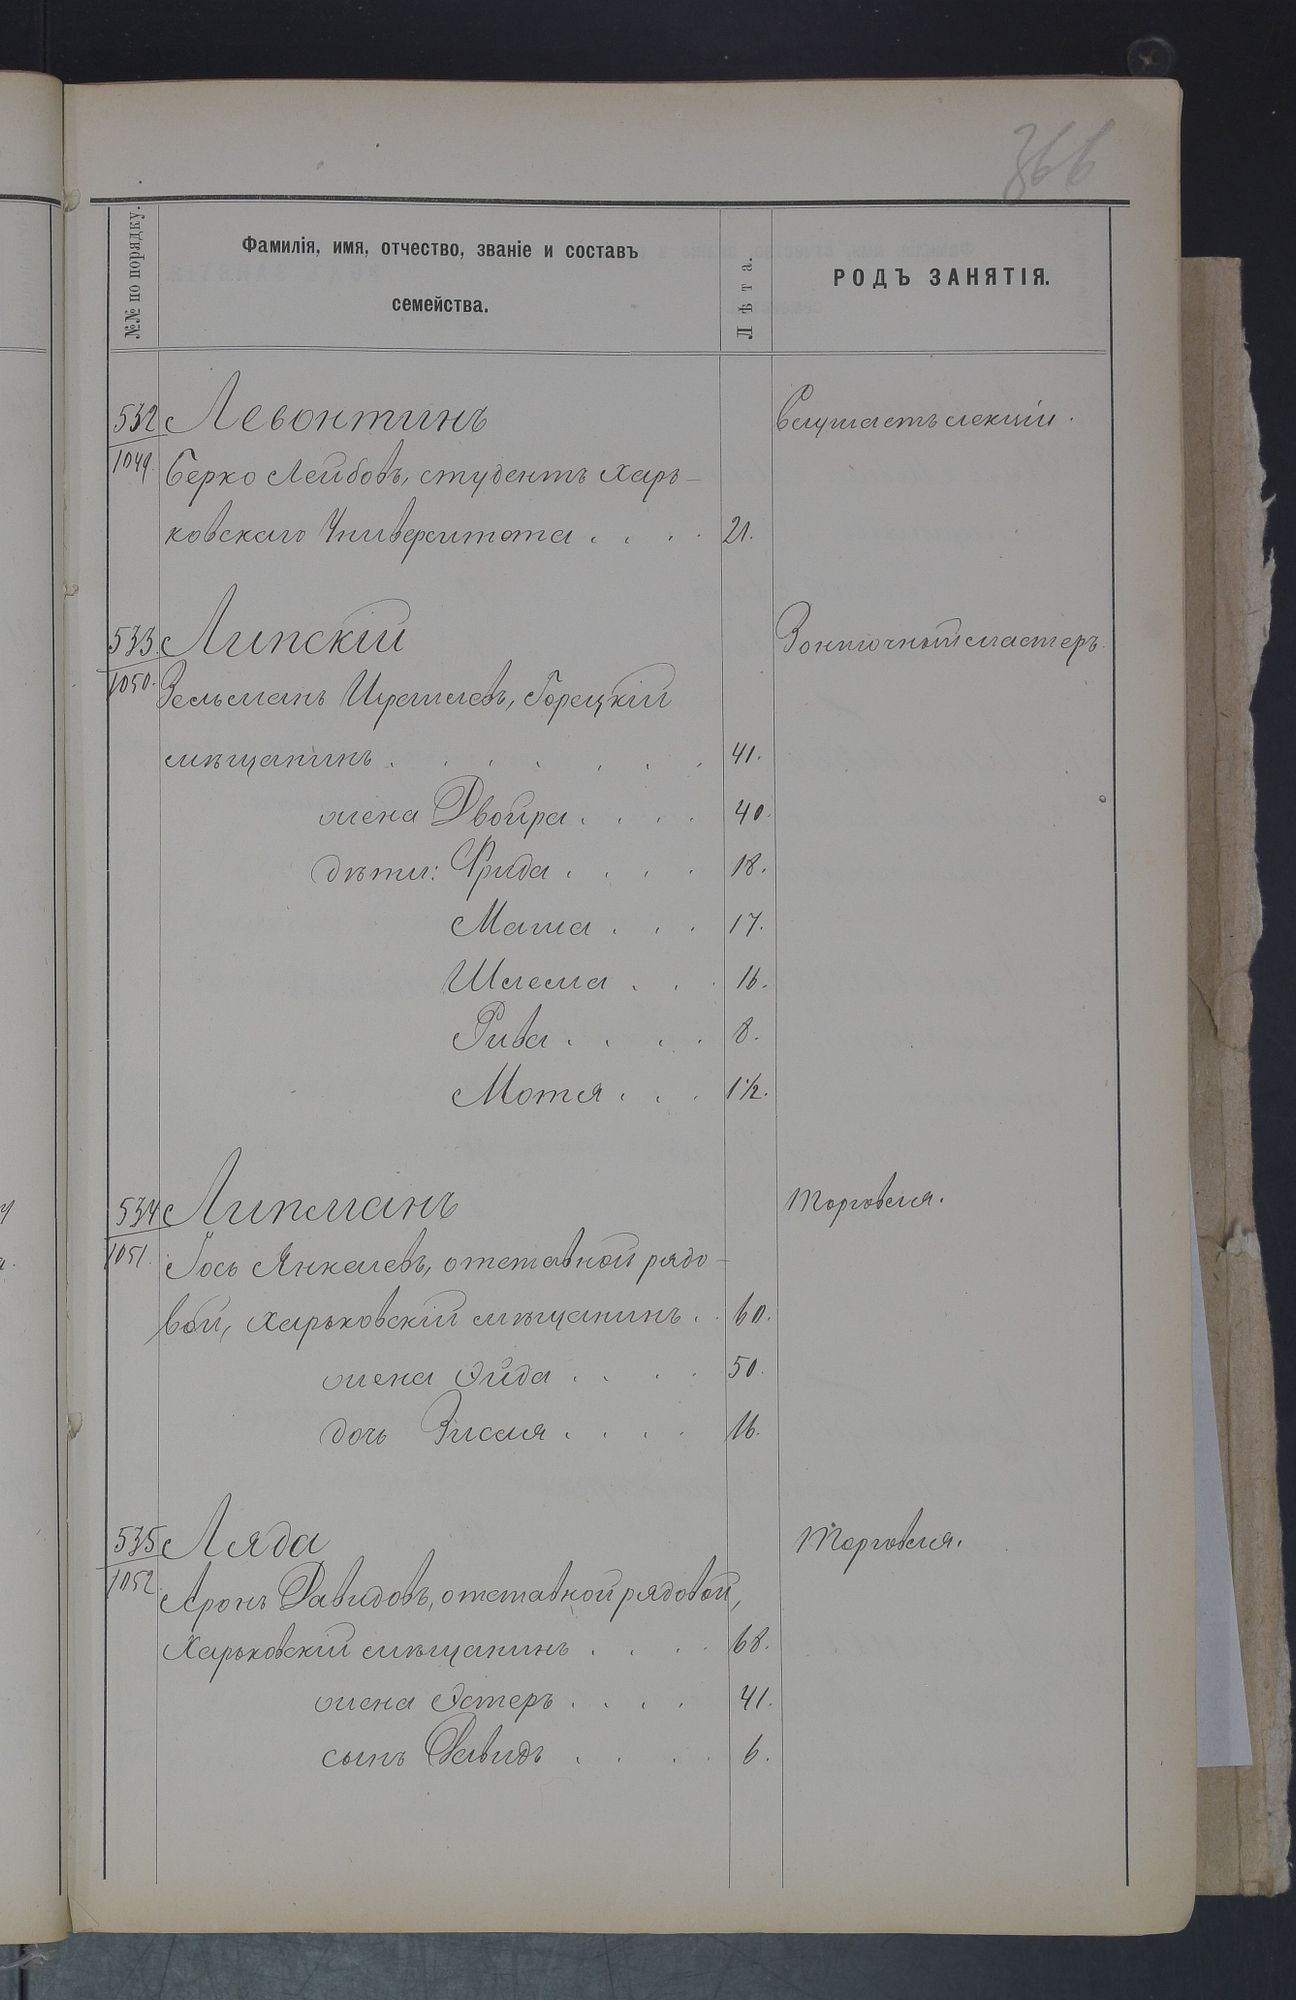 366
№№ по порядку.
Фамилія, имя, отчество, званіе и составъ
семейства.
Лѣта.
РОДЪ ЗАНЯТІЯ.
532 Левонтинъ Слушаетъ лекціи.
1049. Берко Лейбовъ, студентъ Харь-
ковскаго Университета . . . . 21.
533. Липскій Зонтичный мастеръ.
1050. Зельманъ Израилевъ, Горецкій
мѣщанинъ . . . . . . . 41.
жена Двойра . . . . 40.
дѣти: Фрида . . . . 18.
Маша . . . 17.
Шлема . . . 16.
Рива . . . . 8.
Мотя . . . 1 1/2.
534 Липманъ Торговля.
1051. Гось Янкелевъ, отставной рядо-
вой, Харьковскій мѣщанинъ . . 60.
жена Эйда . . . . 50.
дочь Зисля . . . . 16.
535 Ляда Торговля.
1052. Аронъ Давидовъ, отставной рядовой,
Харьковскій мѣщанинъ . . . . 68.
жена Эстеръ . . . . 41.
сынъ Давидъ . . . . 6.